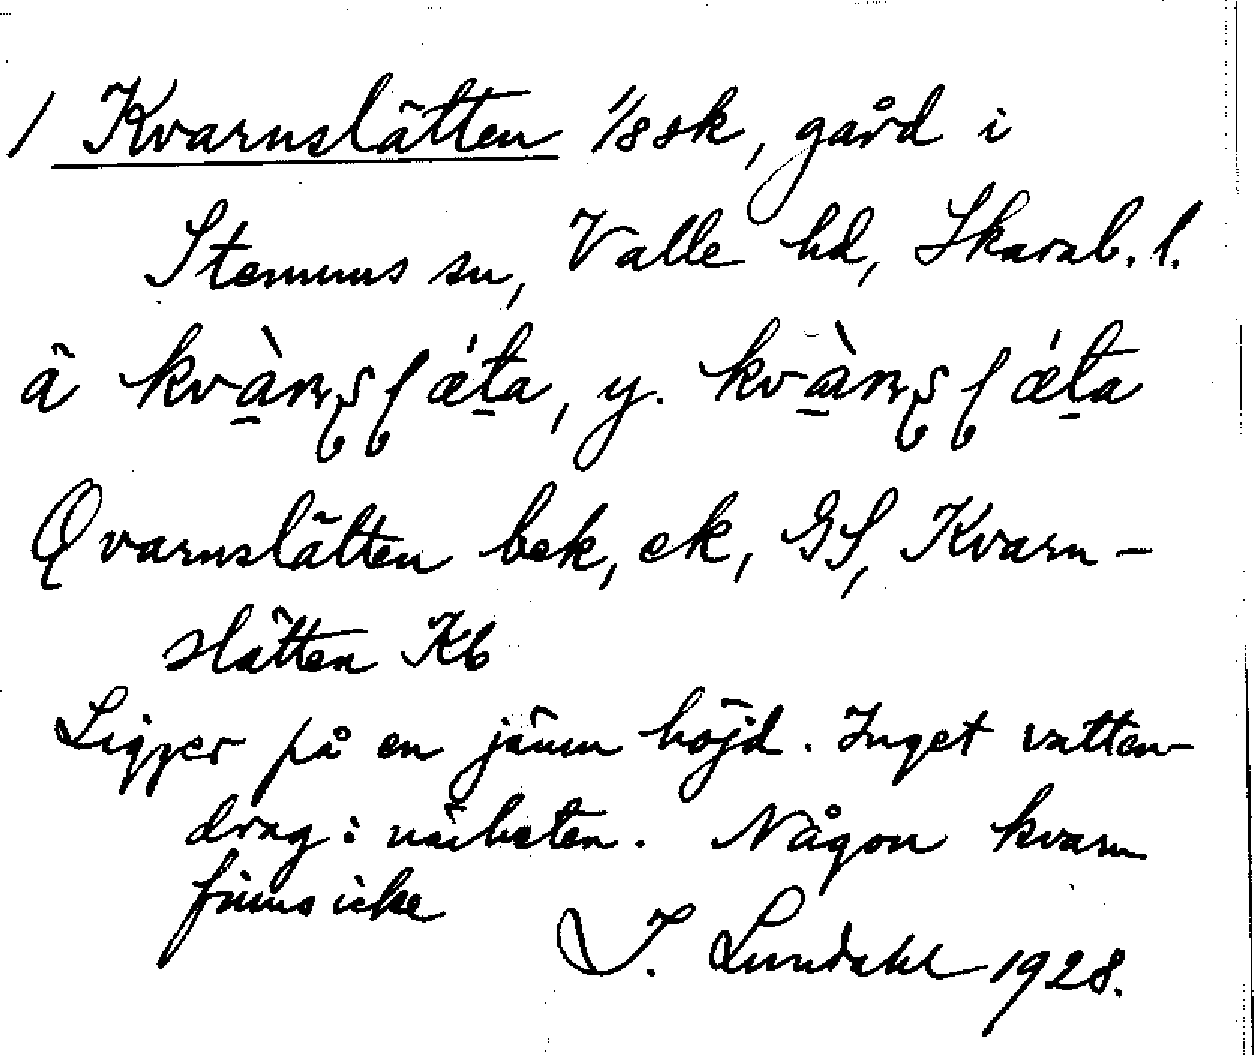 1 Kvarnslätten 1/8 sk, gård i
Stenums sn, Valle hd, Skarab. l.
ä kvàrnslǽta, y. kvàrnslǽta
Qvarnslätten bek, ek, GS, Kvarn-
slätten Kb
Ligger på en jämn höjd. Inget vatten-
drag i närheten. Någon kvarn
finns icke
I. Lundahl 1928.